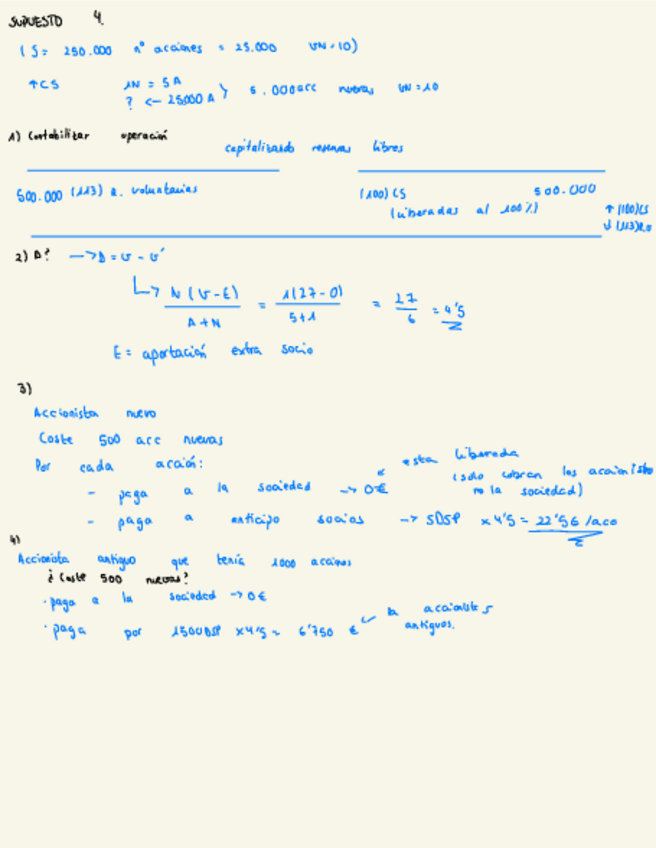 SUPUESTO 4.
CS = 250.000 nº acciones = 25.000 VN = 10)
↑CS 1N = 5A
? <- 25000 A > 5.000 acc nuevas VN = 10
1) Contabilizar operación
capitalizando reservas libres
500.000 (113) R. voluntarias (100) CS 500.000
(liberadas al 100%) ↑ (100)CS
↓ (113)R.V
2) D? -> D = v - v'
↳ N (v-E) / A+N = 1(27-0) / 5+1 = 27/6 = 4'5
E = aportación extra socio
3)
Accionista nuevo
Coste 500 acc nuevas
Por cada acción: esta liberada
- paga a la sociedad -> 0€ (solo cobran los accionistas no la sociedad)
- paga a anticipo socios -> 5DSP x 4'5 = 22'5€ /acc
4)
Accionista antiguo que tenía 1000 acciones
¿Coste 500 nuevas?
· paga a la sociedad -> 0€
· paga por 1500DSP x4'5 = 6'750 € a accionistas antiguos.